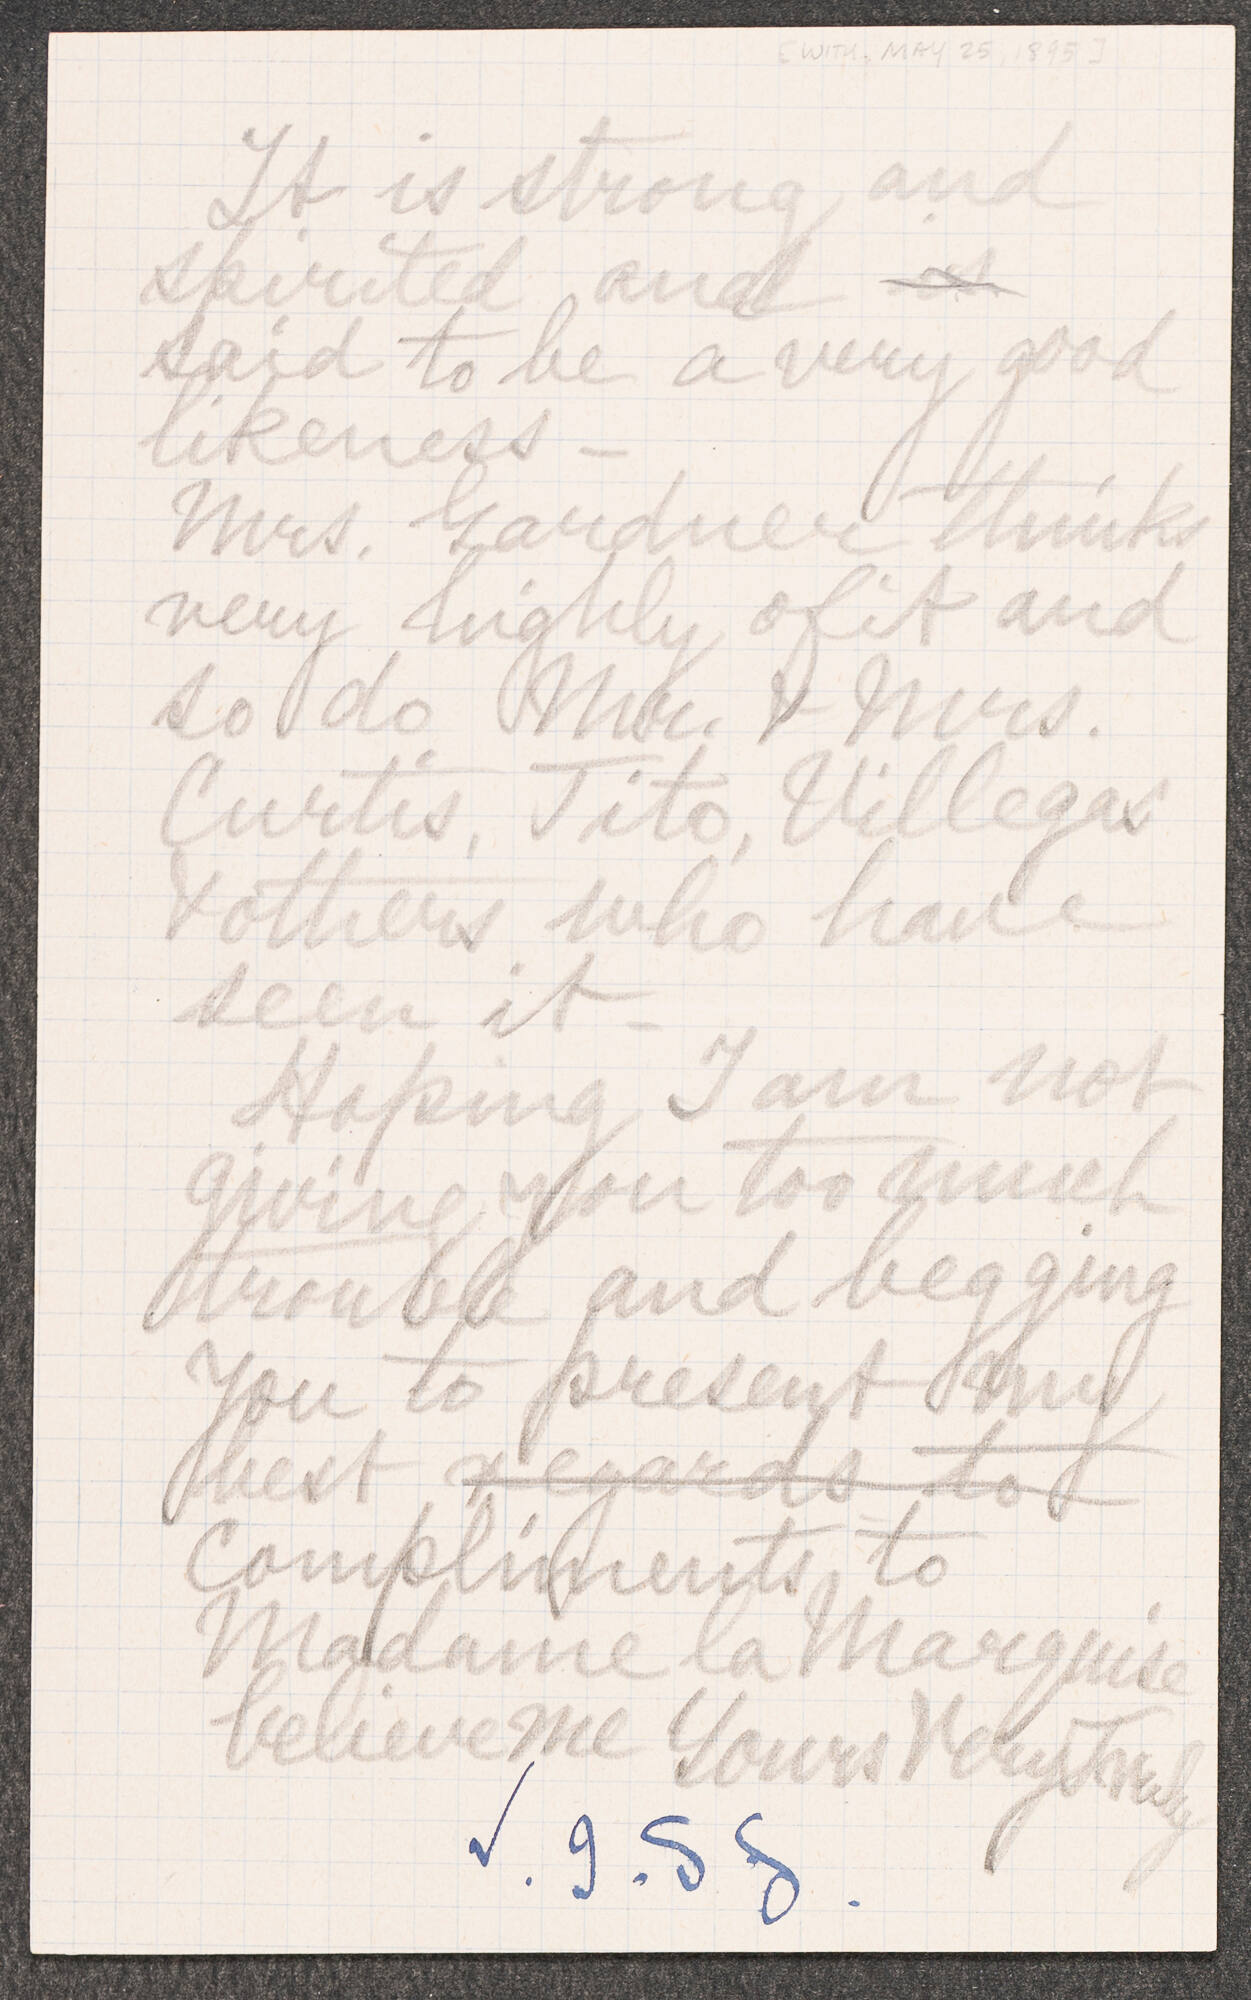 [WITH, MAY 25, 1895]
It is strong and
spirited and is
said to be a very good
likeness –
Mrs. Gardner thinks
very highly of it and
so do Mr. & Mrs.
Curtis, Tito, Villegas
& others who have
seen it –
Hoping I am not
giving you too much
trouble and begging
you to present my
best regards to
compliments to
Madame la Marquise
believe me Yours Very Truly